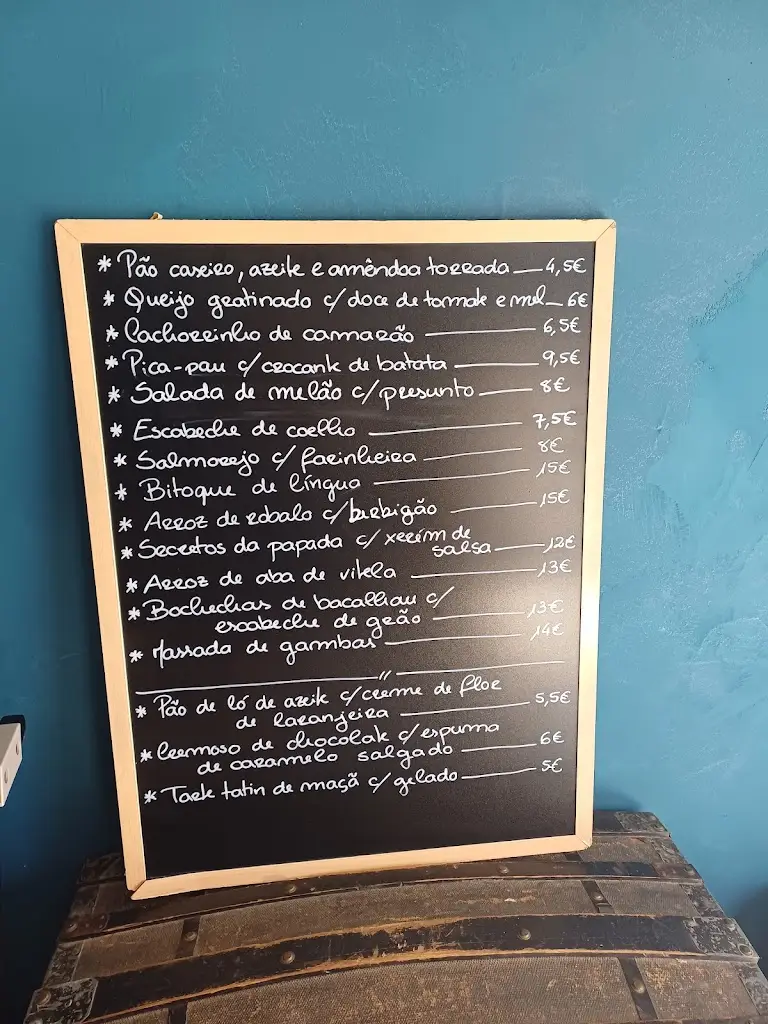 * Pão caseiro, azeite e amêndoa torrada — 4,5€
* Queijo gratinado c/ doce de tomate e mel — 6€
* Cachorrinho de camarão — 6,5€
* Pica-pau c/ crocante de batata — 9,5€
* Salada de melão c/ presunto — 8€
* Escabeche de coelho — 7,5€
* Salmorejo c/ farinheira — 8€
* Bitoque de língua — 15€
* Arroz de robalo c/ berbigão — 15€
* Secretos da papada c/ xerém de
salsa — 12€
* Arroz de aba de vitela — 13€
* Bochechas de bacalhau c/
escabeche de grão — 13€
* Massada de gambas — 14€
//
* Pão de ló de azeite c/ creme de flor
de laranjeira — 5,5€
* Cremoso de chocolate c/ espuma
de caramelo salgado — 6€
* Tarte tatin de maçã c/ gelado — 5€